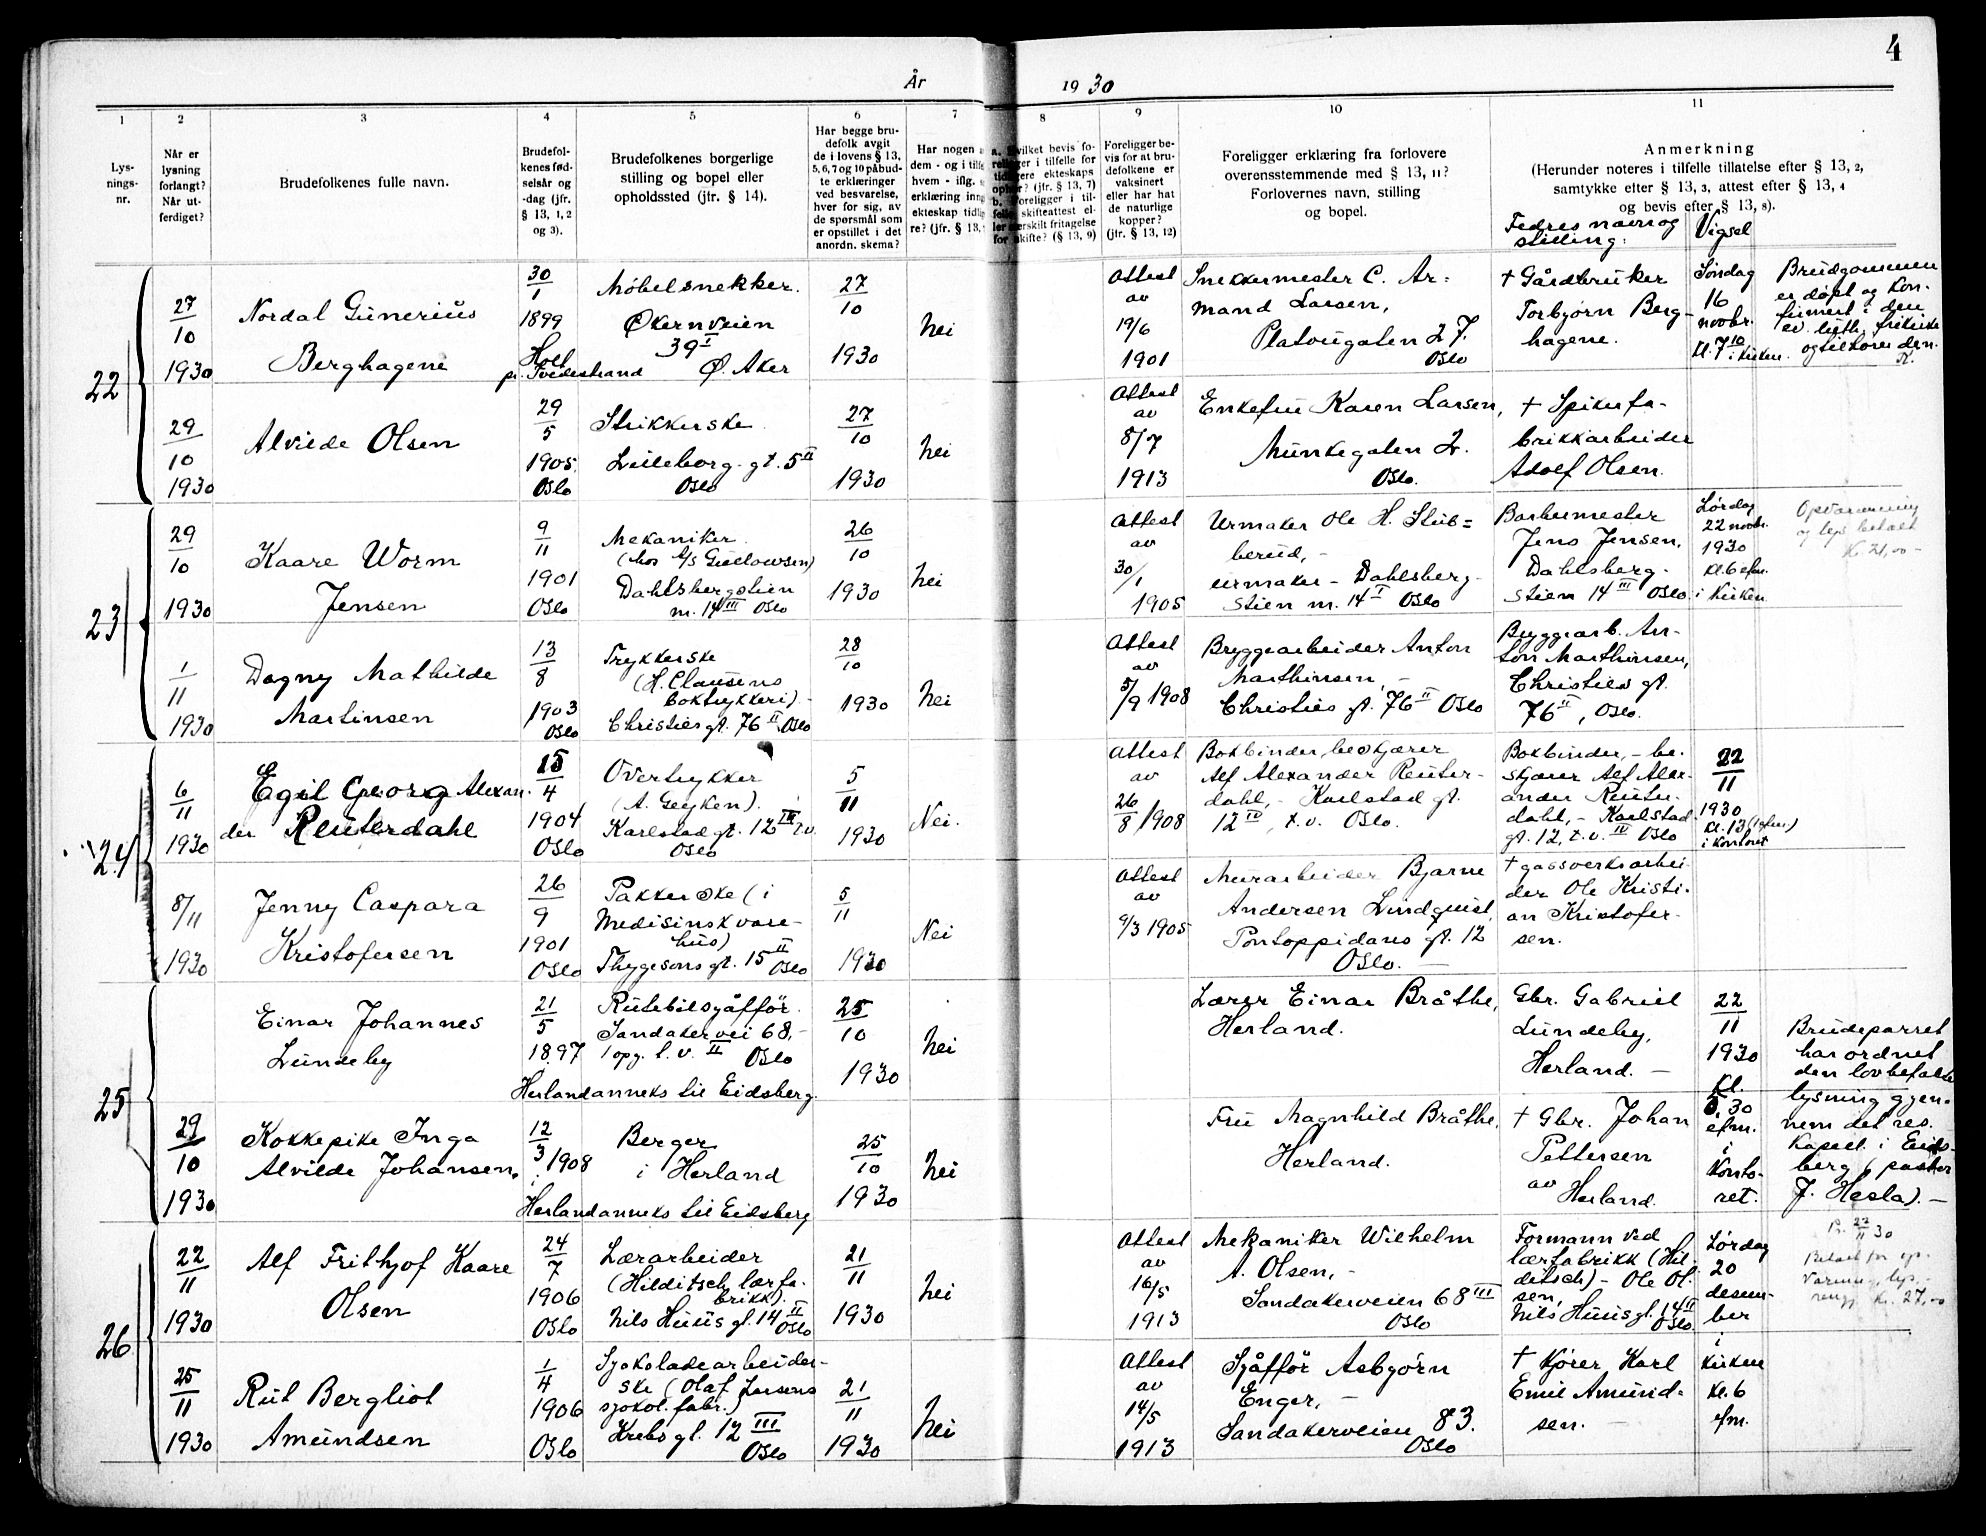 4
År 1930
1
2
3
4
5
6
7
8
9
10
11
Lys-
nings-
nr.
Når er
lysning
forlangt?
Når ut-
ferdiget?
Brudefolkenes fulle navn.
Brudefol-
kenes fød-
selsår og
-dag (jfr.
§ 13, 1, 2
og 3).
Brudefolkenes borgerlige
stilling og bopel eller
opholdssted (jfr. § 14).
Har begge bru-
defolk avgit
de i lovens § 13,
5, 6, 7 og 10 påbud-
te erklæringer
ved besvarelse,
hver for sig, av
de spørsmål som
er opstillet i det
anordn. skema?
Har nogen
dem - og i
hvem - iflg.
erklæring
ekteskap
re? (jfr. § 13,
hvilket bevis fo-
religger i tilfelle for
tidligere ekteskaps
ophør? (jfr. § 13, 7)
b. Foreligger i til-
felle skifteattest el-
ler særskilt fritagelse
for skifte? (§ 13, 9)
Foreligger be-
vis for at bru-
defolkene er
vaksinert
eller har hat
de naturlige
kopper?
(jfr. § 13, 12)
Foreligger erklæring fra forlovere
overensstemmende med § 13, 11?
Forlovernes navn, stilling
og bopel.
Anmerkning
(Herunder noteres i tilfelle tillatelse efter § 13, 2,
samtykke efter § 13, 3, attest efter § 13, 4
og bevis efter § 13, 8).
Fedres navn og
stilling:
Vigsel
22
27
10
1930
Nordal Gunerius
Berghagene
30
1
1899
Holt
pr. Tvedestrand
Møbelsnekker.
Økernveien
39 I
Ø. Aker
27
10
1930
Nei
Attest
av
19/6
1901
Snekkermester C. Ar=
mand Larsen,
Platougaten 27.
Oslo
+ Gårdbruker
Torbjørn Berg-
hagene.
Søndag
16
novbr.
kl. 7 10
i kirken.
Brudgommen
er døpt og kon-
firmert i den
ev. luth. frikirke
og tilhører den.
29
10
1930
Alvilde Olsen
29
5
1905
Oslo
Strikkerske
Lilleborg. gt. 5 II
Oslo
27
10
1930
Nei
Attest
av
8/7
1913
Enkefru Karen Larsen,
Munkegaten 2.
Oslo.
+ Spikerfa-
brikkarbeider
Adolf Olsen.
23
29
10
1930
Kaare Worm
Jensen
9
11
1901
Oslo
Mekaniker
(hos A/S Gullowsen)
Dahlsbergstien
nr. 14 III Oslo
26
10
1930
Nei
Attest
av
30/1
1905
Urmaker Ole H. Stub=
berud, -
urmaker - Dahlsberg-
stien nr. 14 I Oslo
Barbermester
Jens Jensen,
Dahlsberg-
stien 14 III Oslo.
Lørdag
22 novbr.
1930
kl. 6 efm.
i kirken
Opvarmning
og lys betalt
kr. 21,00 -
1
11
1930
Dagny Mathilde
Martinsen
13
8
1903
Oslo
Trykkerske
(H. Clausens
boktrykkeri). -
Christies gt. 76 II Oslo
28
10
1930
Nei
Attest
av
5/9 1908
Bryggearbeider Anton
Marthinsen, -
Christies gt. 76 II Oslo
Bryggearb. An-
ton Marthinsen,
Christies gt.
76 II, Oslo.
24
6
11
1930
Egil Georg Alexan-
der Reuterdahl
25
4
1904
Oslo
Overtrykker
(A. Geyken).
Karlstad gt. 12 III t.v.
Oslo
5
11
1930
Nei.
Attest
av
26
8/1908
Bokbinder, beskjærer
Alf Alexander Reuter-
dahl, - Karlstad gt.
12 IV, t.v. Oslo.
Bokbinder, - be-
skjærer Alf Alex-
ander Reuter-
dahl, - Karlstad
gt. 12, t.v. IV Oslo
22
11
1930
kl. 13 (1 efm.)
i kontoret
8/11
1930
Jenny Caspara
Kristofersen
26
9
1901
Oslo
Pakkerske (i
Medisinsk vare-
hus)
Thygesons gt. 15 II Oslo
5
11
1930
Nei
Attest
av
9/3 1905
Murarbeider Bjarne
Andersen Lindquist,
Pontoppidans gt. 12
Oslo. -
+ gassverksarbei-
der Ole Kristi-
an Kristofer-
sen.
25
Einar Johannes
Lundeby
21
5
1897
Herland anneks til Eidsberg.
Rutebilsjåffør.
Sandakervei 68,-
1 opg. t.v. II Oslo
25
10
1930
Nei
Lærer Einar Bråthe,
Herland.
Gbr. Gabriel
Lundeby,
Herland. -
22
11
1930
kl.
5.30
efm.
i
Konto-
ret.
Brudeparret
har ordnet
den lovbefalte
lysning gjen-
nem det res.
kapell. i Eids-
berg (pastor
J. Hesla). -
29
10
1930
Kokkepike Inga
Alvilde Johansen.
12
3/1908
i
Herland anneks til Eidsberg
Berger
i Herland
25
10
1930
Nei
Fru Magnhild Bråthe,
Herland.
+ Gbr. Johan
Pettersen
av
Herland.
26
22
11
1930
Alf Frithjof Kaare
Olsen
24
7
1906
Oslo
Lærarbeider
(Hilditsch lærfa-
brikk).
Nils Huus gt. 14 II
Oslo
21
11
1930
Nei
Attest
av
16/5
1913
Mekaniker Wilhelm
A. Olsen, -
Sandakerveien 68 III
Oslo
Formann ved
lærfabrikk (Hil-
ditsch) - Ole Ol-
sen,
Nils Huus gt. 14 II
Oslo.
Lørdag
20
desem-
ber
i
kirken
kl. 6
efm.
22
11 30
Betalt for op-
varming, lys,
rengj. kr. 27,00
25
11
1930
Rut Bergliot
Amundsen
1
4
1906
Oslo
Sjokoladearbeider-
ske (Olaf Larsens
sjokol. fabr.)
Krebs gt. 12 III
Oslo
21
11
1930
Nei
Attest
av
14/5
1913
Sjåffør Asbjørn
Enger, -
Sandakerveien 83.
Oslo
+ Kjører Karl
Emil Amund-
sen. -